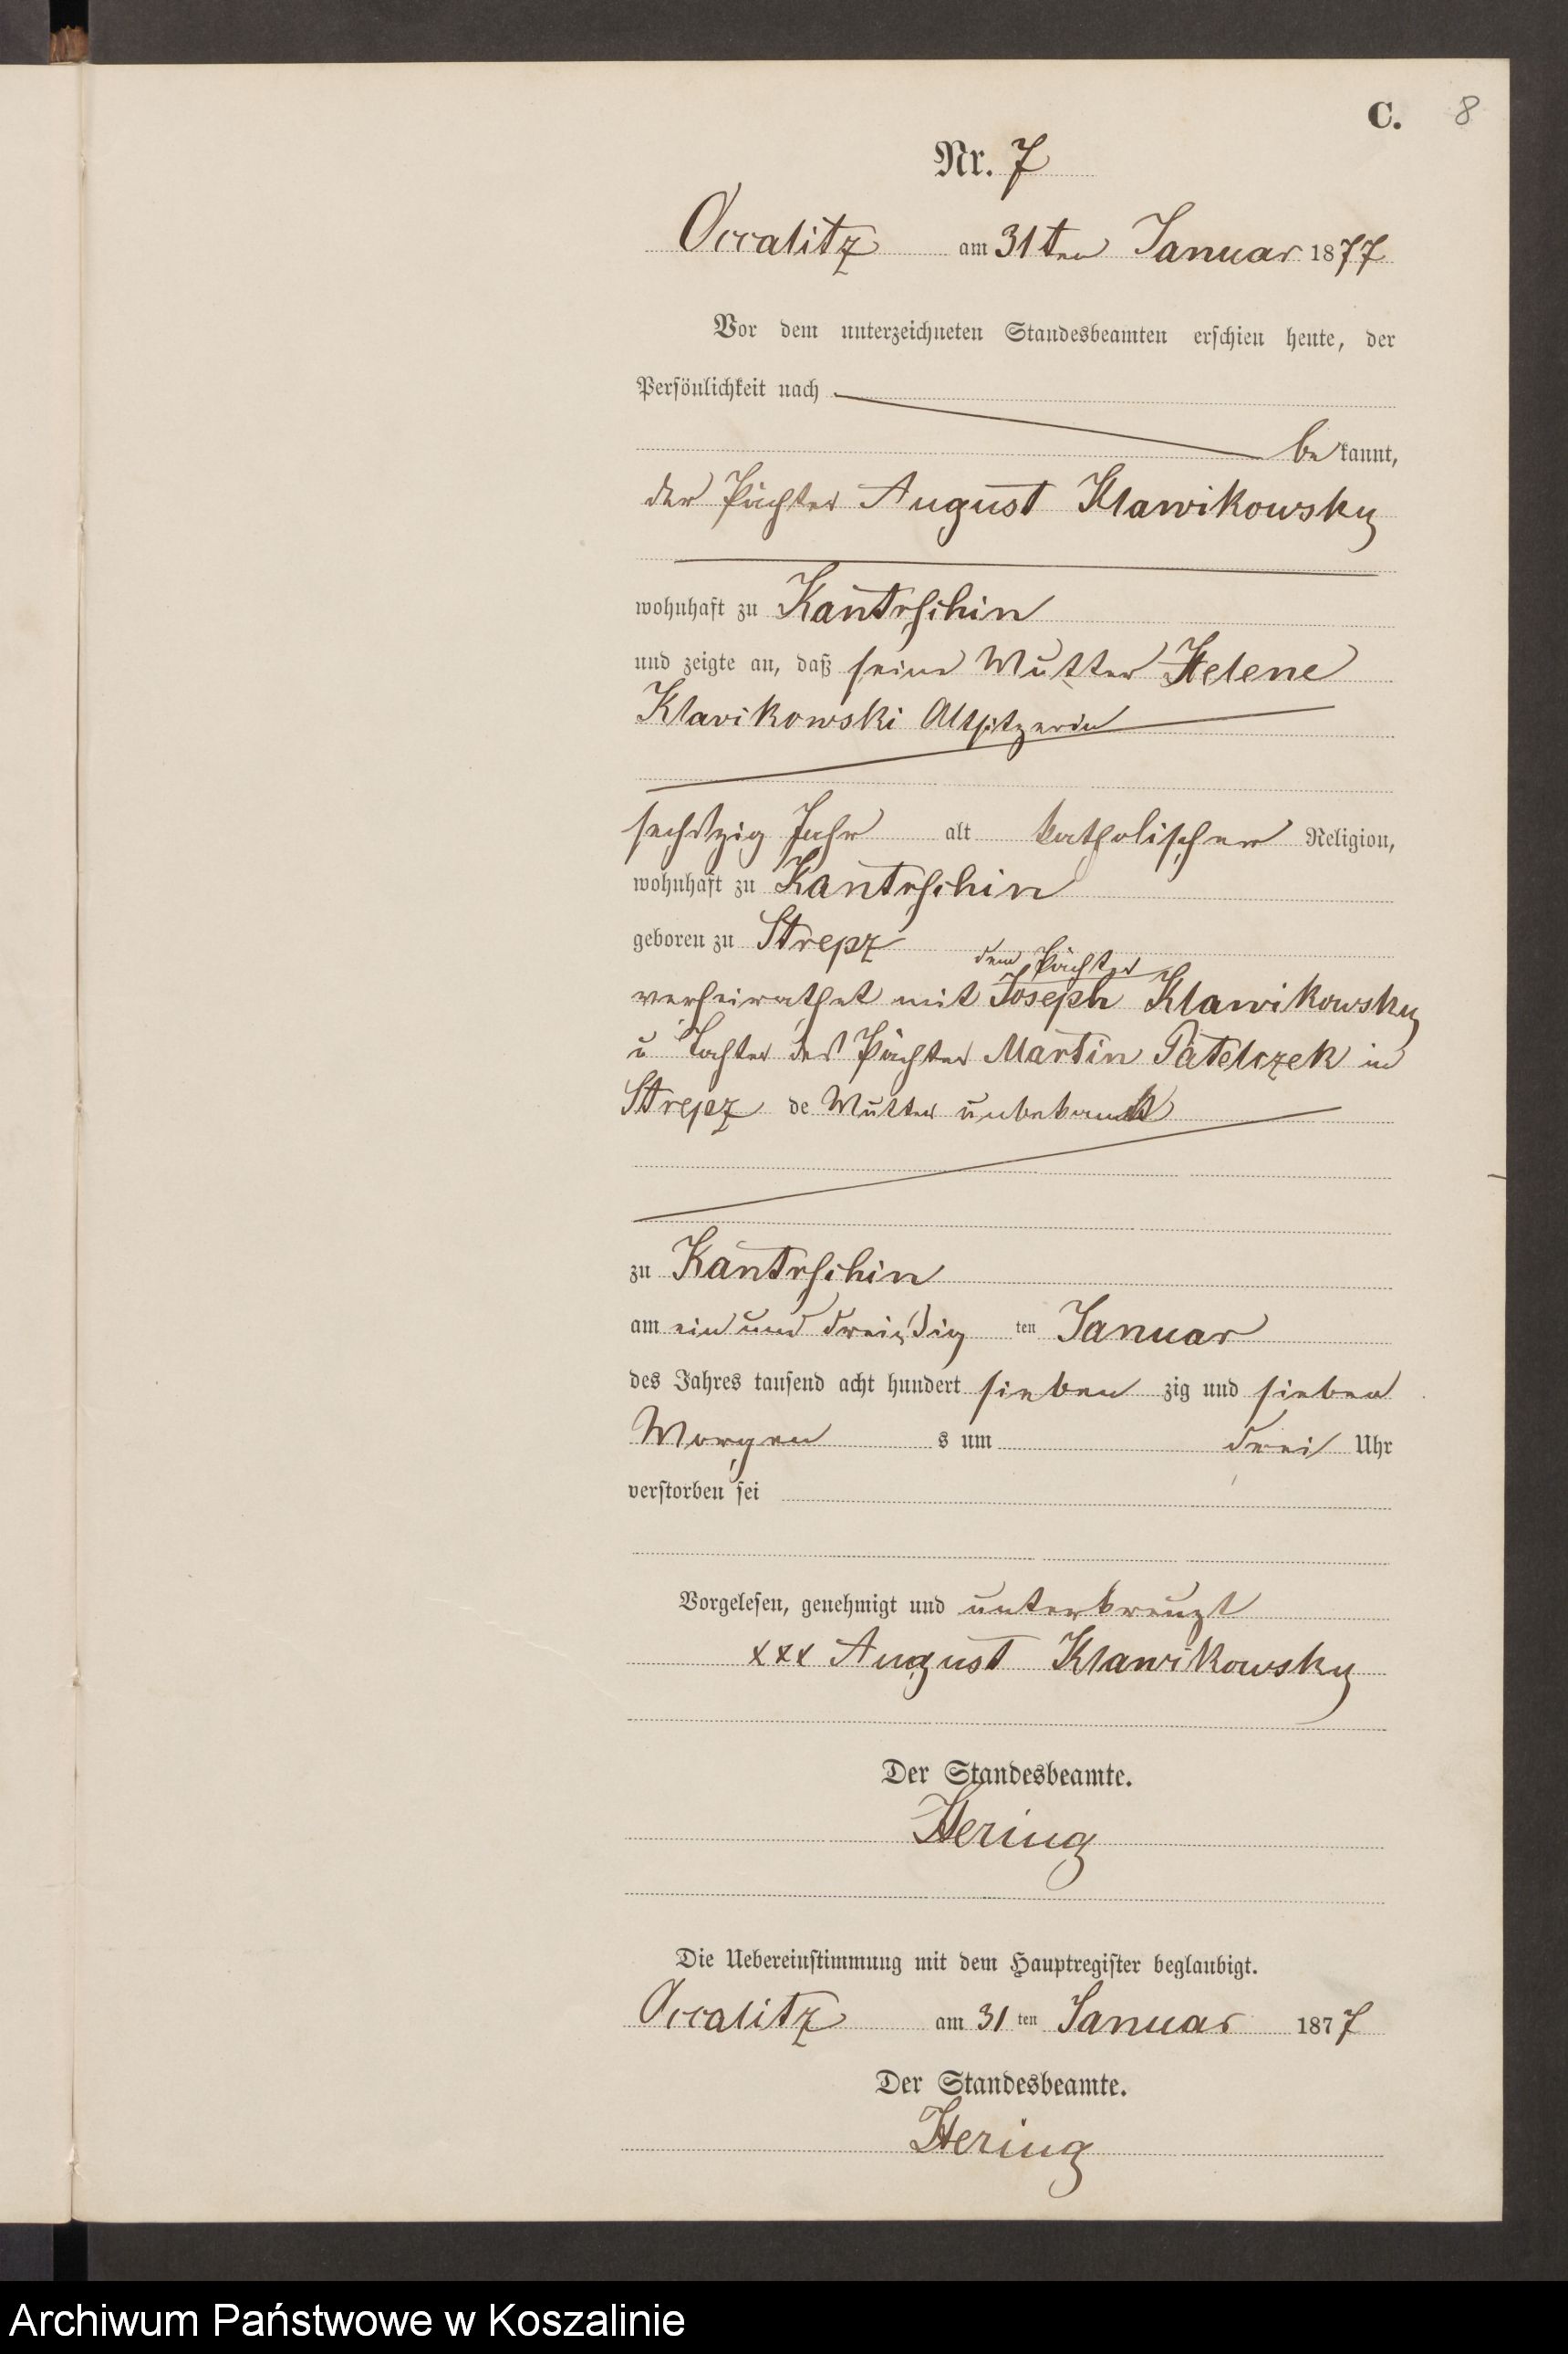 C. 8
Nr. 7
Occalitz am 31ten Januar 1877
Vor dem unterzeichneten Standesbeamten erschien heute, der
Persönlichkeit nach
bekannt,
der Pächter August Klawikowsky
wohnhaft zu Kantrschin
und zeigte an, daß seine Mutter Helene
Klavikowski Altsitzerin
sechszig Jahr alt katholischer Religion,
wohnhaft zu Kantrschin
geboren zu Strepz
dem Pächter
verheirathet mit Joseph Klawikowsky
u Tochter des Pächter Martin Patelczek in
Strepz de Mutter unbekannt
zu Kantrschin
am ein und dreißig ten Januar
des Jahres tausend acht hundert sieben zig und sieben
Morgen s um drei Uhr
verstorben sei
Vorgelesen, genehmigt und unterkreuzt
xxx August Klawikowsky
Der Standesbeamte.
Hering
Die Uebereinstimmung mit dem Hauptregister beglaubigt.
Occalitz am 31 ten Januar 1877
Der Standesbeamte.
Hering
Archiwum Państwowe w Koszalinie